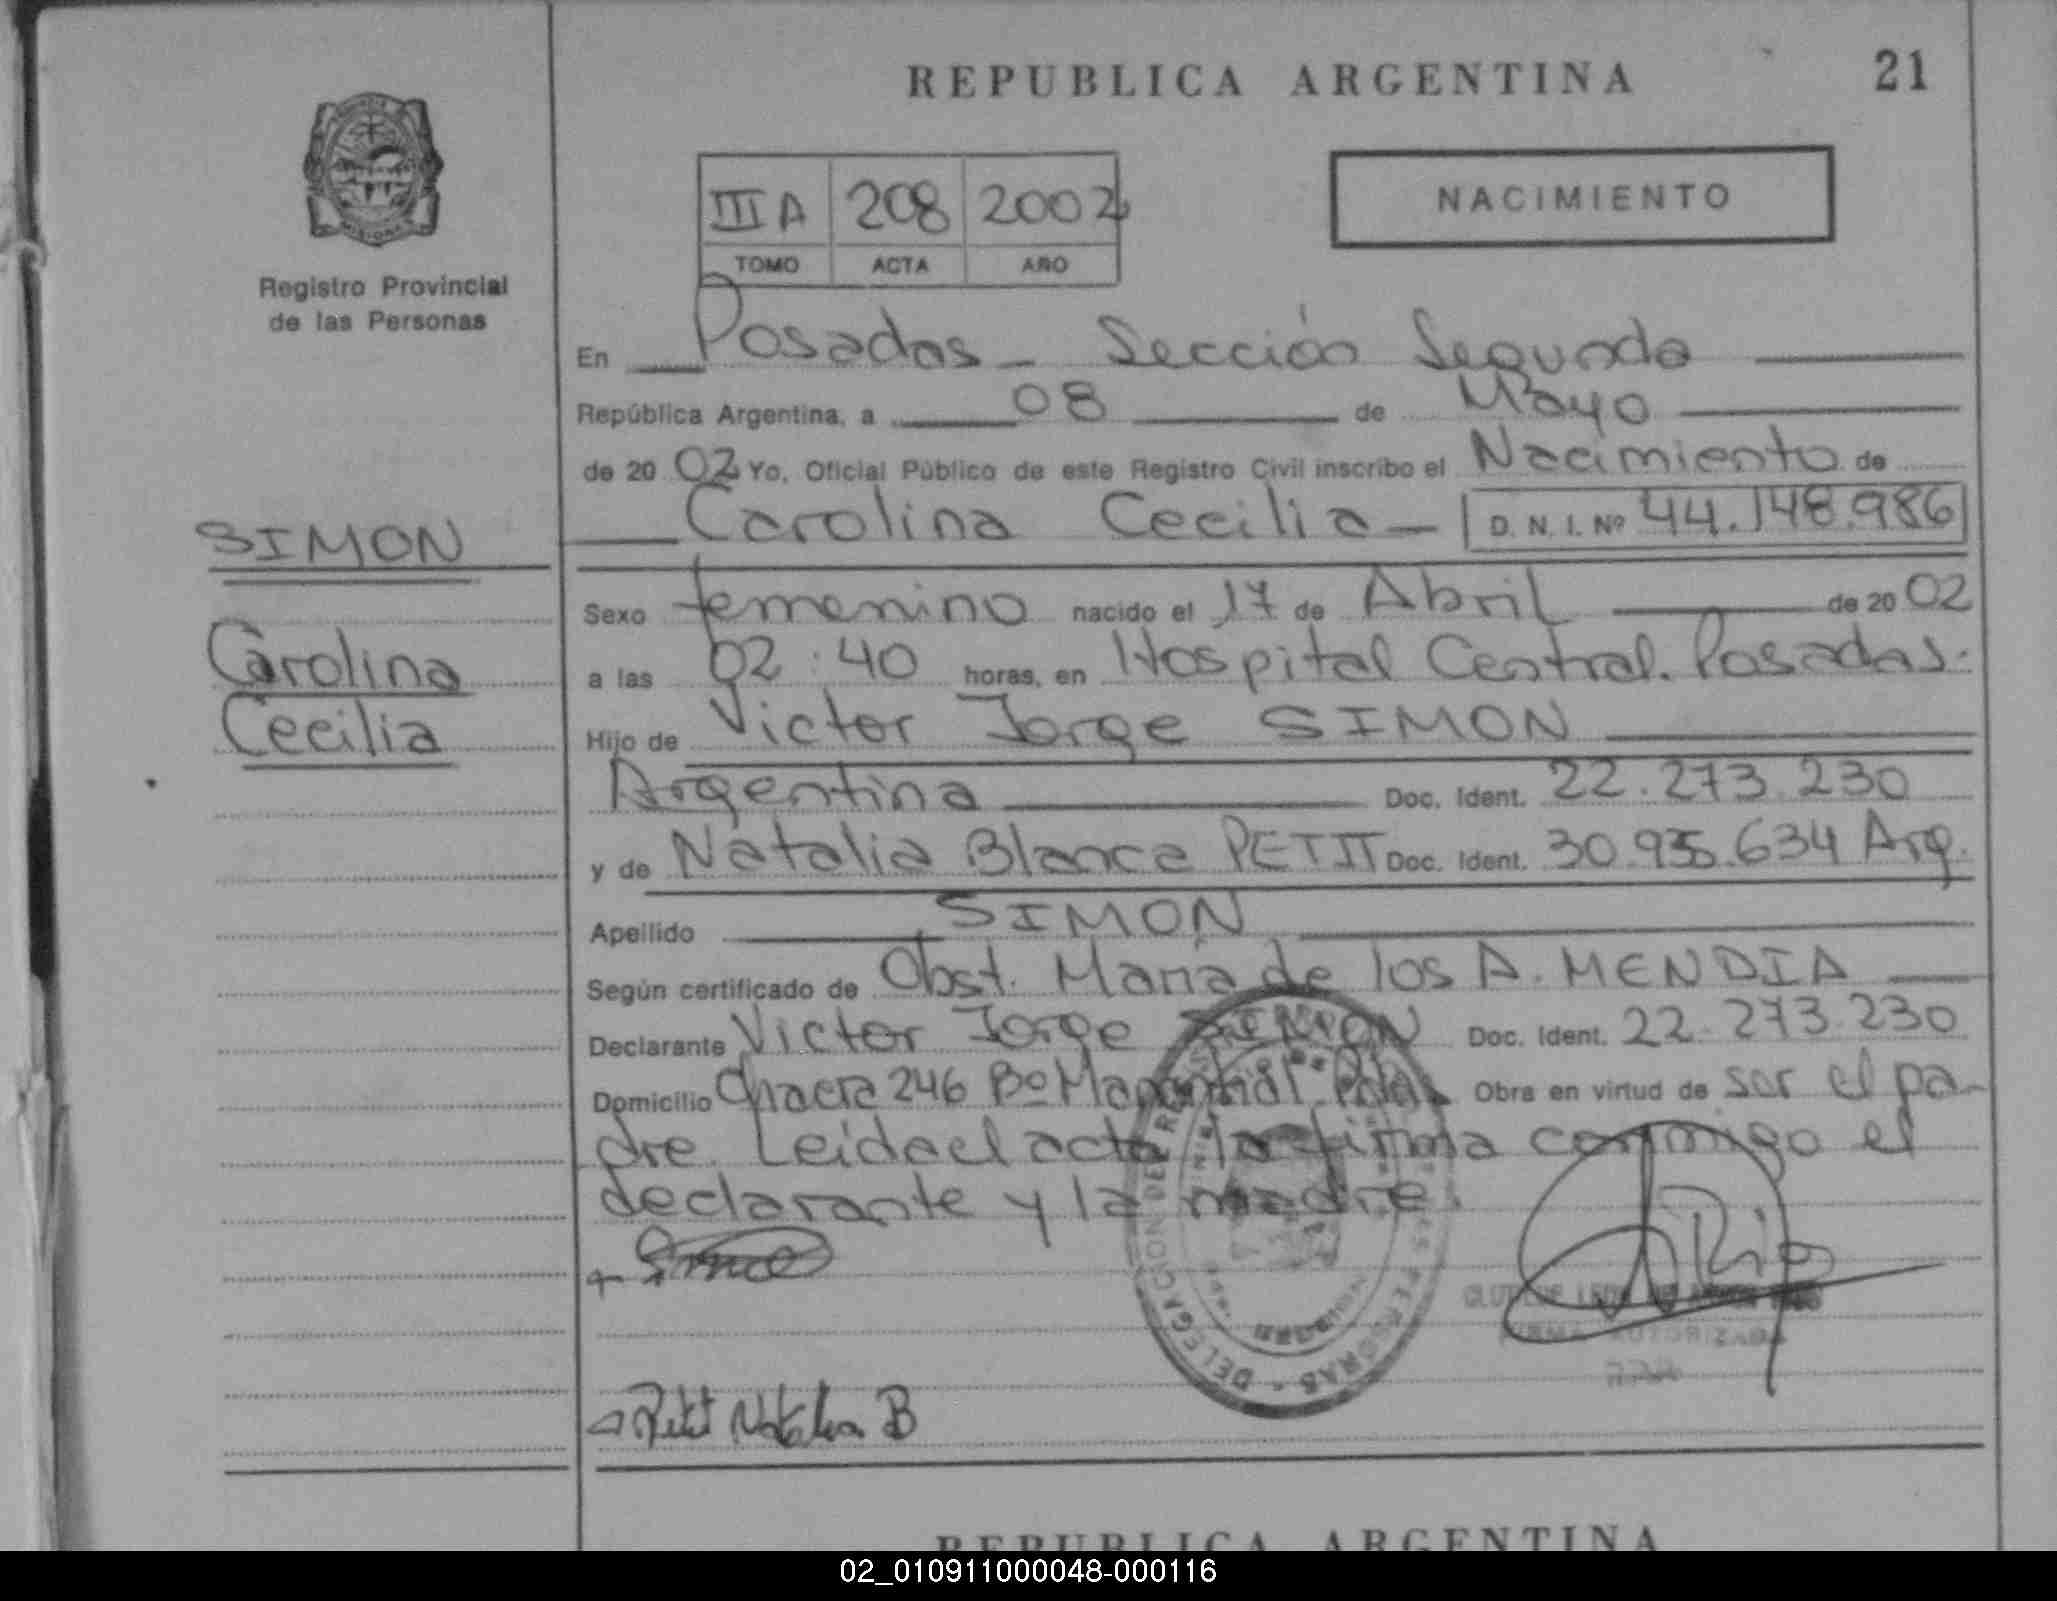 REPUBLICA ARGENTINA
21
III A 208 2002
TOMO ACTA AÑO
NACIMIENTO
Registro Provincial
de las Personas
En Posadas - Sección Segunda
República Argentina, a 08 de Mayo
de 20 02 Yo, Oficial Público de este Registro Civil inscribo el Nacimiento de
Carolina Cecilia - D. N. I. Nº 44.148.986
SIMON
Carolina
Cecilia
Sexo femenino nacido el 17 de Abril de 20 02
a las 02:40 horas, en Hospital Central. Posadas.
Hijo de Victor Jorge SIMON
Argentina Doc. Ident. 22.273.230
y de Natalia Blanca PETIT Doc. Ident. 30.935.634 Arg.
Apellido SIMON
Según certificado de Obst. Maria de los A. MENDIA
Declarante Victor Jorge SIMON Doc. Ident. 22.273.230
Domicilio Chacra 246 Bº Manantial Pdas Obra en virtud de ser el pa-
dre. Leida el acta la firma conmigo el
declarante y la madre.
DELEGACION DE
PERSONAS
Petit Natalia B
REPUBLICA ARGENTINA
02_010911000048-000116